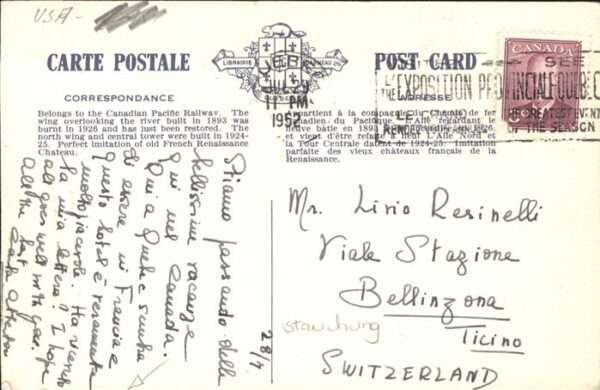 USA -
CARTE POSTALE
POST CARD
LIBRAIRIE GARNEAU
CORRESPONDANCE
ADRESSE
Belongs to the Canadian Pacific Railway. The
wing overlooking the river built in 1893 was
burnt in 1926 and has just been restored. The
north wing and central tower were built in 1924-
25. Perfect imitation of old French Renaissance
Chateau.
Appartient à la compagnie du Chemin de fer
Canadien du Pacifique
neuve bâtie en 1893
et vient d'être refaite à neuf. L'Aile Nord et
la Tour Centrale datent de 1924-25. Imitation
parfaite des vieux châteaux français de la
Renaissance.
QUEBEC
11 PM
1952
SEE
L'EXPOSITION PROVINCIALE QUEBEC
GREATEST EVENT
OF THE SEASON
CANADA
Stiamo passando delle
bellissime vacanze
qui nel Canada.
Qui a Quebec sembra
di essere in Francia e
questo hotel è veramente
molto piacevole. Ha ricevuto
la mia lettera? I hope
all goes well with you.
All the best
28/7
Mr. Livio Resinelli
Viale Stazione
Bellinzona
Ticino
SWITZERLAND